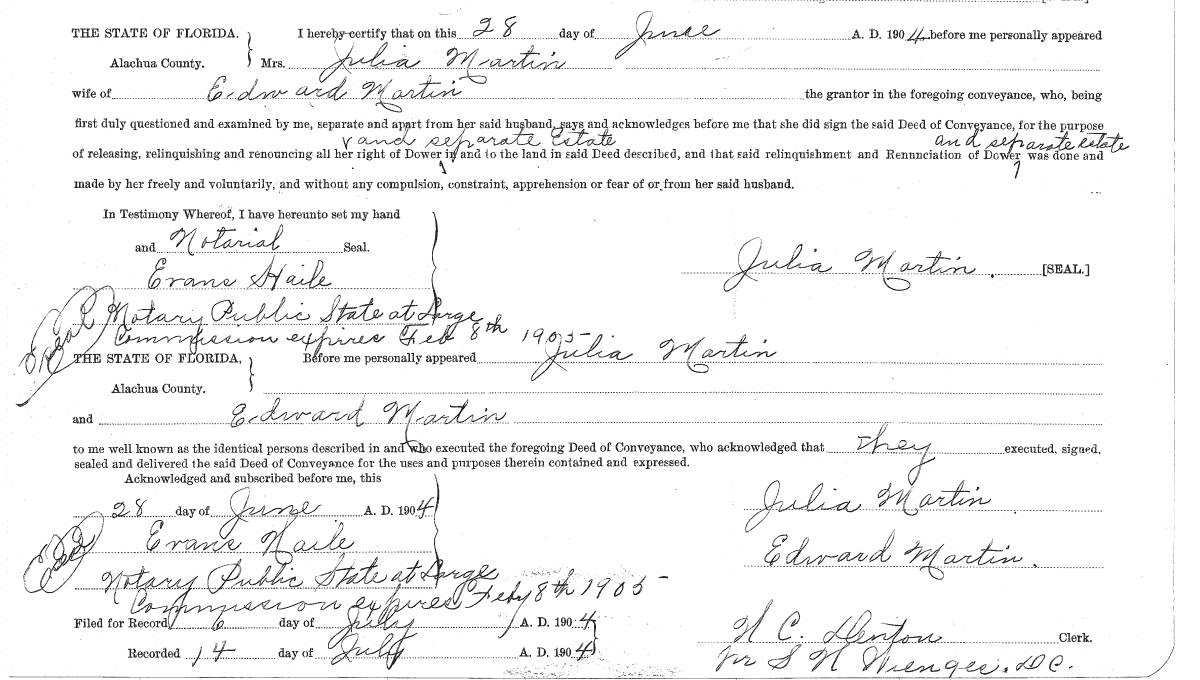 THE STATE OF FLORIDA. I hereby certify that on this 28 day of June A. D. 1904. before me personally appeared
Alachua County. Mrs. Julia Martin
wife of Edward Martin the grantor in the foregoing conveyance, who, being
first duly questioned and examined by me, separate and apart from her said husband, says and acknowledges before me that she did sign the said Deed of Conveyance, for the purpose
and separate Estate and separate estate
of releasing, relinquishing and renouncing all her right of Dower in and to the land in said Deed described, and that said relinquishment and Renunciation of Dower was done and
made by her freely and voluntarily, and without any compulsion, constraint, apprehension or fear of or from her said husband.
In Testimony Whereof, I have hereunto set my hand
and Notarial Seal.
Evans Haile Julia Martin. [SEAL.]
Seal Notary Public State at Large
Commission expires Feb 8th 1905
THE STATE OF FLORIDA, Before me personally appeared Julia Martin
Alachua County.
and Edward Martin
to me well known as the identical persons described in and who executed the foregoing Deed of Conveyance, who acknowledged that they executed, signed,
sealed and delivered the said Deed of Conveyance for the uses and purposes therein contained and expressed.
Acknowledged and subscribed before me, this
28 day of June A. D. 1904 Julia Martin
Seal Evans Haile Edward Martin.
Notary Public State at Large
Commission expires Feby 8th 1905
Filed for Record 6 day of July A. D. 1904 H C. Denton Clerk.
Recorded 14 day of July A. D. 1904 pr S H Wienges. D.C.